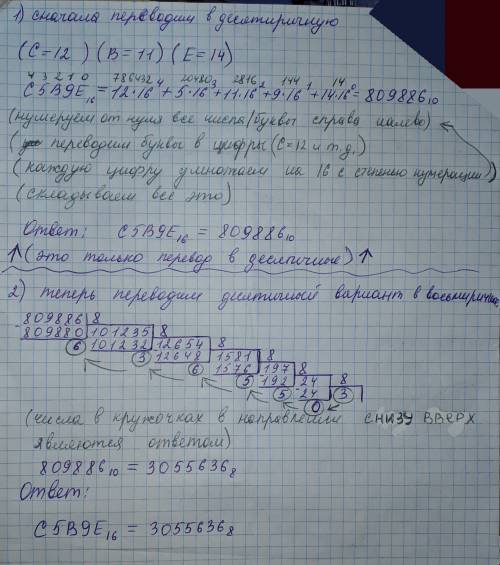 1) сначала переводим в десятиричную
(C=12) (B=11) (E=14)
4 3 2 1 0 786432 20480 2816 144 14
C5B9E₁₆ = 12·16⁴ + 5·16³ + 11·16² + 9·16¹ + 14·16⁰ = 809886₁₀
(нумеруем от нуля все числа/буквы справа налево)
( переводим буквы в цифры (C=12 и т.д.)
(каждую цифру умножаем на 16 с степенью нумерации)
(складываем всё это)
Ответ: C5B9E₁₆ = 809886₁₀
↑(это только перевод в десятичные)↑
2) теперь переводим десятичный вариант в восьмиричн.
809886 8
-809880 101235 8
6 101232 12654 8
3 12648 1581 8
6 1576 197 8
5 192 24 8
5 -24 3
0
(числа в кружочках в направлении СНИЗУ ВВЕРХ
являются ответом)
809886₁₀ = 3055636₈
Ответ:
C5B9E₁₆ = 3055636₈